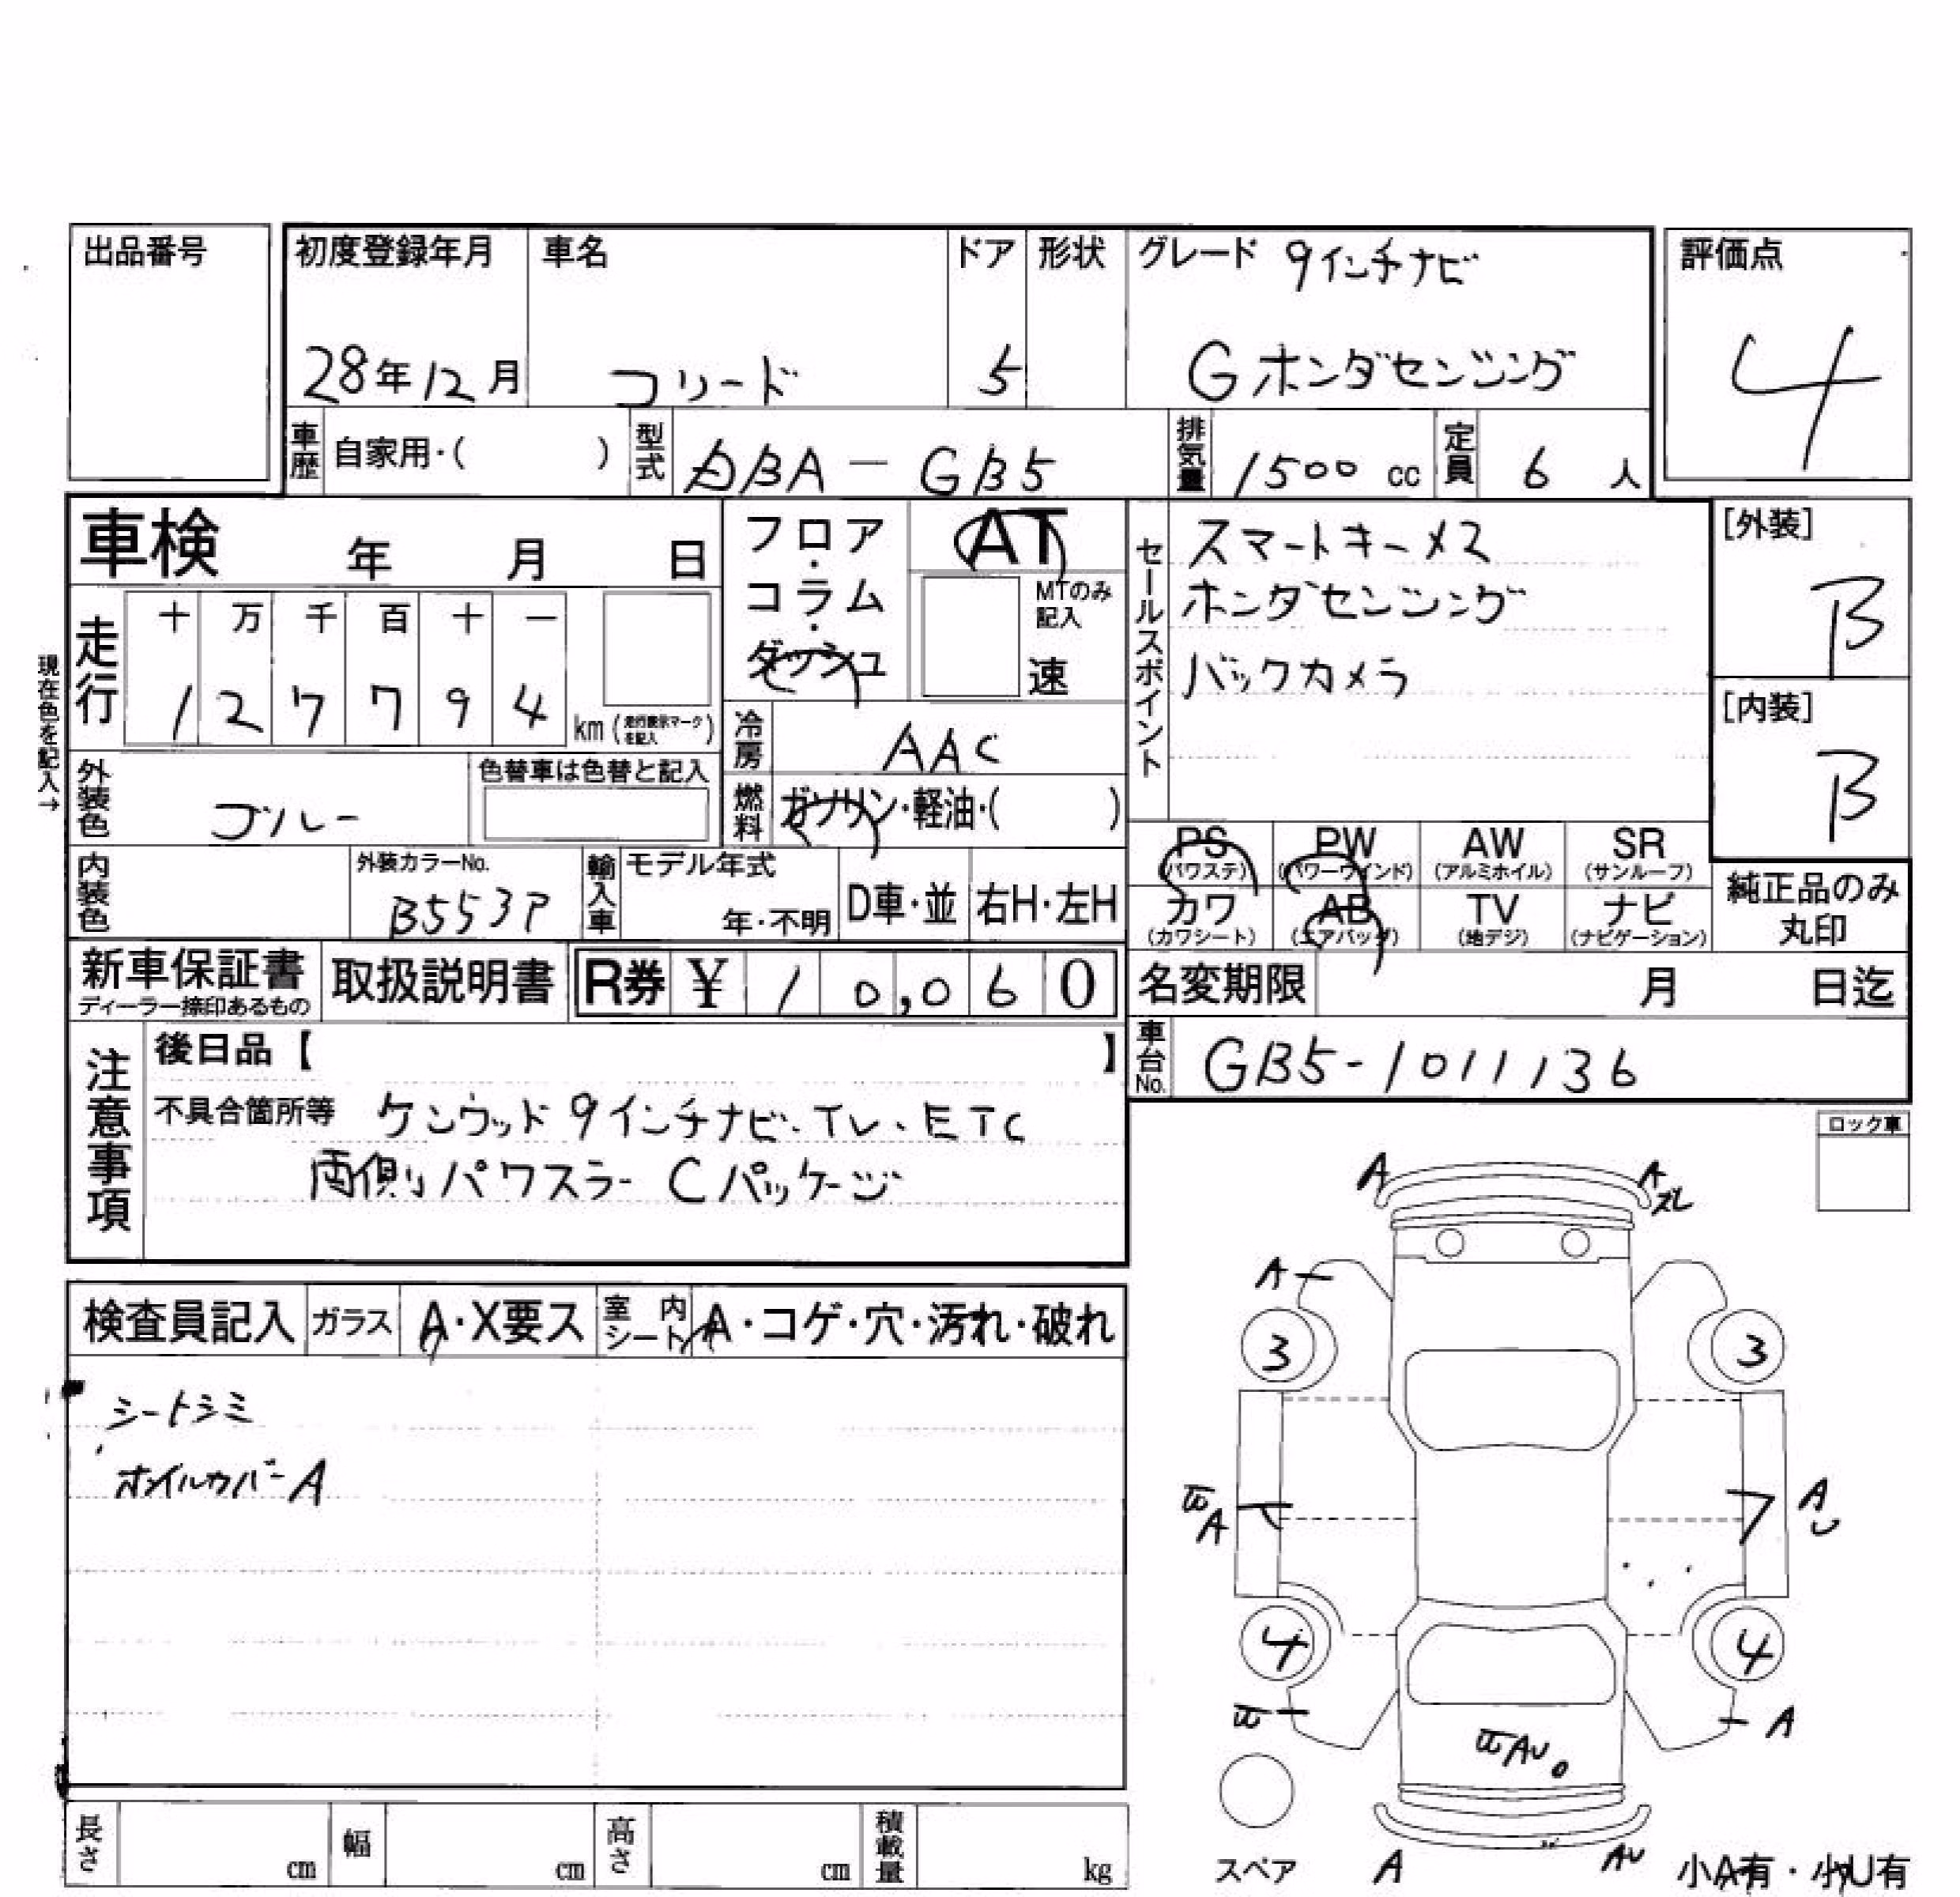 出品番号
初度登録年月 車名 ドア 形状 グレード 9インチナビ
評価点
28年12月 フリード 5 Gホンダセンシング
4
車歴 自家用・( ) 型式 DBA-GB5 排気量 1500 cc 定員 6 人
車検 年 月 日
フロア・コラム・ダッシュ
AT
MTのみ記入
速
セールスポイント
スマートキーメス
ホンダセンシング
バックカメラ
[外装]
B
[内装]
B
現在色を記入→
走行 十 万 千 百 十 一
1 2 7 7 9 4 km (走行表示マークを記入)
冷房 AAC
外装色 ブルー 色替車は色替と記入
燃料 ガソリン・軽油・( )
PS (パワステ) PW (パワーウインド) AW (アルミホイル) SR (サンルーフ)
カワ (カワシート) AB (エアバッグ) TV (地デジ) ナビ (ナビゲーション)
純正品のみ丸印
内装色 外装カラーNo. B553P 輸入車 モデル年式 年・不明 D車・並 右H・左H
新車保証書 ディーラー捺印あるもの 取扱説明書 R券 ¥ 10,060
名変期限 月 日迄
車台No. GB5-1011136
注意事項
後日品【 】
不具合箇所等 ケンウッド9インチナビ・TV・ETC
両側パワスラー Cパッケージ
ロック車
検査員記入 ガラス A・X要ス 室内シート A・コゲ・穴・汚れ・破れ
シートシミ
ホイルカバーA
A A
ズレ
A
3 3
A A
U
4 4
A
AU
スペア A AU 小A有・小U有
長さ cm 幅 cm 高さ cm 積載量 kg